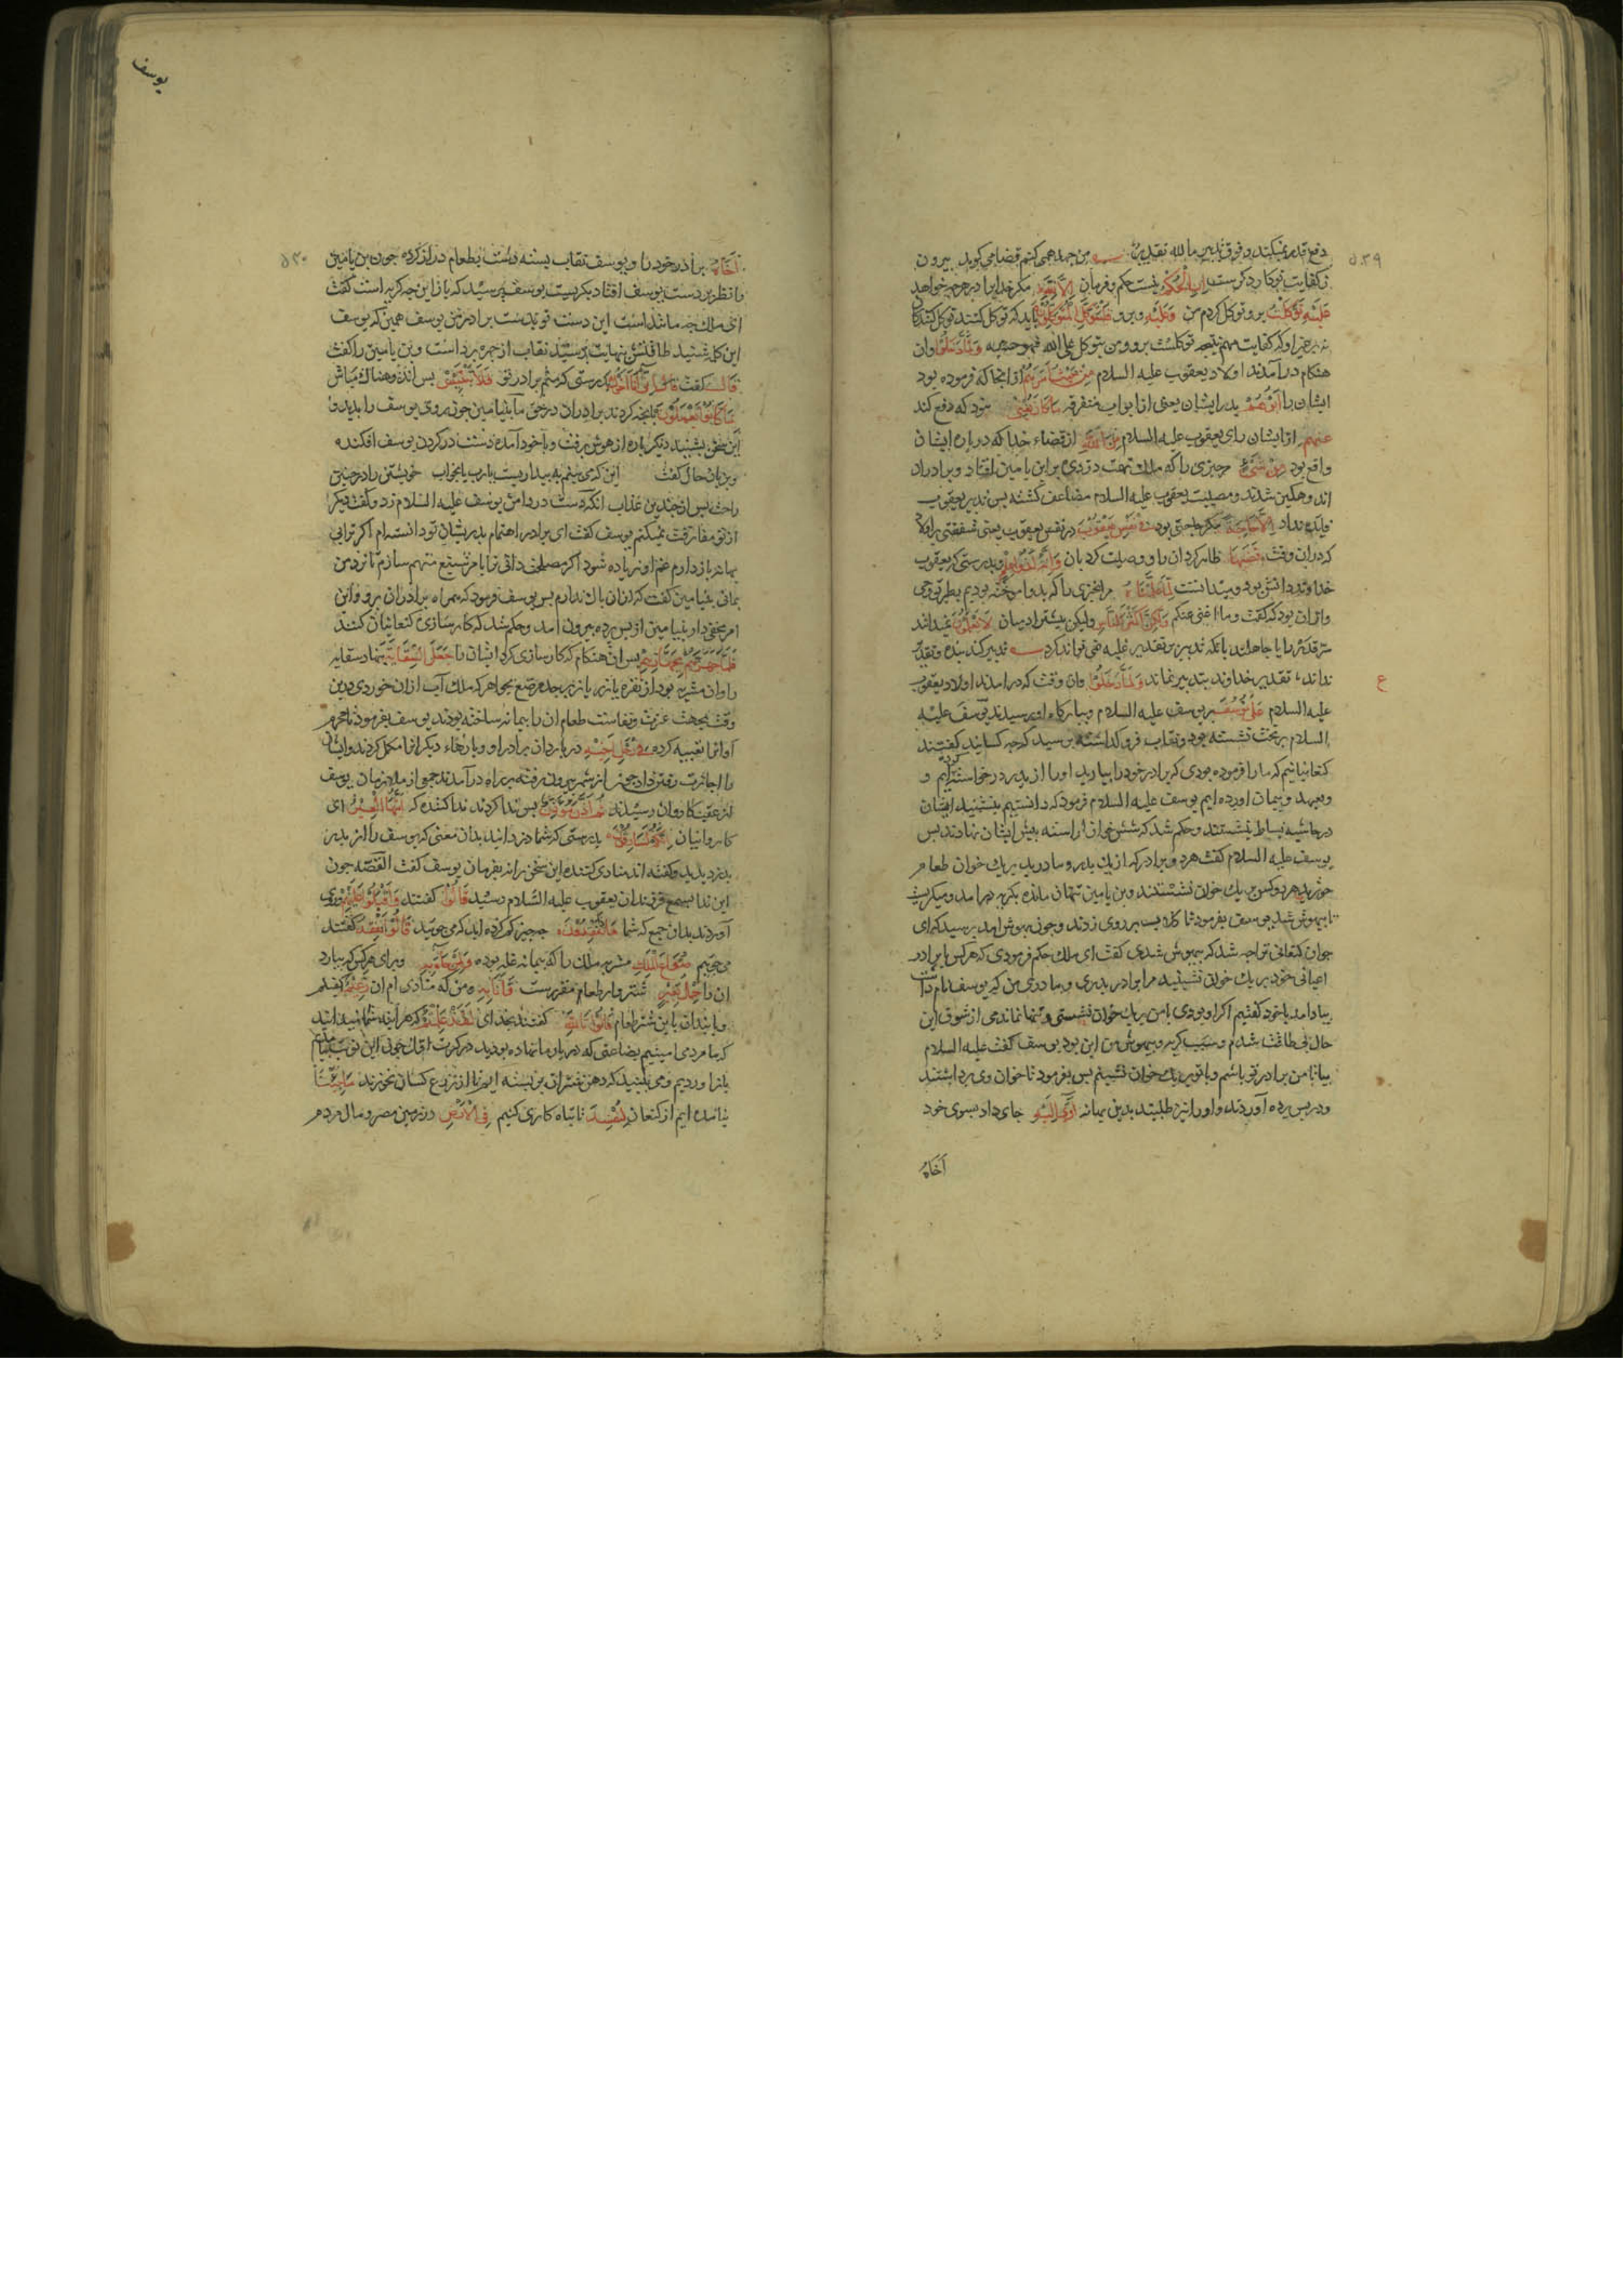 دفع قدر نمیکند و فوق تدبیر ما لله تقدیر من جهد همی کنم قضا می گوید بیرون
ز کفایت تو کار دگرست ان الحکم نیست حکم و فرمان الا لله مکر خدایرا در هر چه خواهد
علیه توکلت برو توکل کردم من وعلیه وبرو فلیتوکل المتوکلون باید که توکل کنند توکل کنندکان
ومن یتوکل علی الله فهو حسبه ولما دخلوا وان
هنکام در آمدند اولاد یعقوب علیه السلام من حیث امرهم از انجا که فرموده بود
ایشان را ابوهم پدر ایشان یعنی از ابواب متفرقه ما کان یغنی نبود که دفع کند
عنهم از ایشان رای یعقوب علیه السلام من الله از قضاء خدا که درباره ایشان
واقع بود من شیء چیزی را که تهمت دزدی بر ابن یامین افتاد وبرادران
اندوهکین شدند ومصیبت یعقوب علیه السلام مضاعف کشته پس تدبیر یعقوب
فایده نداد الا حاجة مکر حاجتی بود فی نفس یعقوب در نفس یعقوب یعنی شفقتی
که دران وقت قضیها ظاهر کرد ان را و وصیت کرد بان وانه لذو علم وبدرستی که یعقوب
خداوند دانش بود لما علمناه مر انچیزی را که بدو اموخته بودیم بطریق وحی
وازان بود که کفت وما اغنی عنکم ولکن اکثر الناس ولیکن بیشتر ادمیان لا یعلمون نمیدانند
سر قدر را یا جاهلند بانکه تدبیر بر تقدیر غلبه نمی تواند کرد تدبیر کند بنده وتقدیر
نداند تقدیر خداوند بتدبیر نماند ولما دخلوا وان وقت که در امدند اولاد یعقوب
علیه السلام علی یوسف بر یوسف علیه السلام وببارکاه او رسیدند یوسف علیه
السلام بر تخت نشسته بود ونقاب فرو کذاشته پرسید که چه کسانید کفتند
کنعانیانیم که ما را فرموده بودی که برادر خود را بیارید او را از پدر درخواستیم و
وبعهد وپیمان اورده ایم یوسف علیه السلام فرمود که دانستیم بنشینید ایشان
در حاشیه بساط بنشستند وحکم شد که شش خوان اراسته پیش ایشان نهادند پس
یوسف علیه السلام کفت هر دو برادر که از یک پدر ومادرید بر یک خوان طعام
خورید هر دو کس بر یک خوان نشستند وبن یامین تنها مانده بکریه در امد ومیکریست
تا بیهوش شد یوسف بفرمود تا کلاب بر روی زدند وچون بهوش امد پرسید که ای
جوان کنعانی ترا چه شد که بیهوش شدی کفت ای ملک حکم فرمودی که هر کس با برادر
اعیانی خود بر یک خوان نشینید مرا برادر پدری ومادری من که یوسف نام داشت
بیادامد با خود کفتم اکر او بودی با من بر یک خوان نشستی وتنها نماندمی از شوق این
حال بی طاقت شدم وسبب کریه وبیهوشی من این بود یوسف کفت علیه السلام
بیا تا من برادر تو باشم وبا تو بر یک خوان نشینم پس بفرمود تا خوان وی برداشتند
ودر پس پرده آوردند واو را نیز طلبیدند بدین بهانه آوی الیه جای داد بسوی خود
اخاه
۵۳۹
ع
یوسف
۵۴۰
اخاه برادر خود را ویوسف نقاب بسته دست بطعام دراز کرده چون بن یامین
را نظر بر دست یوسف افتاد بکریست یوسف پرسید که باز این چه کریه است کفت
ای ملک چه مانند است این دست تو بدست برادر من یوسف همین که یوسف
این کلمه شنید طاقتش بنهایت رسید نقاب از چهره برداشت وبن یامین را کفت
قال کفت انی انا اخوک بدرستی که منم برادر تو فلا تبتئس پس اندوهناک مباش
بما کانوا یعملون بانچه کردند برادران در حق ما بنیامین چون روی یوسف را بدید و
این سخن بشنید دیکر باره از هوش برفت وبا خود آمده دست در کردن یوسف افکنده
وبزبان حال کفت این که می بینم به بیداریست یارب یا بخواب خویشتن را در چنین
راحت پس از چندین عذاب انکه دست در دامن یوسف علیه السلام زد وکفت دیکر
از تو مفارقت نمیکنم یوسف کفت ای برادر اهتمام پدر بشان تو دانسته ام اکر ترا بی
بهانه باز دارم غم او زیاده شود اکر مصلحت دانی ترا بامر شنیع متهم سازم تا نزد من
بمانی بنیامین کفت که ازان باک ندارم پس یوسف فرمود که همراه برادران برو واین
امر مخفی دار بنیامین از پس پرده بیرون امد وحکم شد که کارسازی کنعانیان کنند
فلما جهزهم بجهازهم پس ان هنکام که کارسازی کرد ایشان را جعل السقایة بنهاد سقایه
را وان مشربه بود از نقره یا زر یا زبرجد مرصع بجواهر که ملک آب ازان خوردی درین
وقت بجهت عزت ونفاست طعام ان را پیمانه ساخته بودند یوسف بفرمود تا محرم
آوانرا تعبیه کرده فی رحل اخیه در باردان برادر او وبارهاء دیکر انرا مکمل کردند وایشان
را اجازت رفتن داد چون از شهر بیرون رفته براه در آمدند جمعی از ملازمان یوسف
از عقب کاروان رسیدند ثم اذن مؤذن پس ندا کردند ندا کننده که ایتها العیر ای
کاروانیان انکم لسارقون بدرستی که شما دزدانید بدان معنی که یوسف را از پدر
بدزدیدید وکفته اند منادی کننده این سخن را نه بفرمان یوسف کفت القصه چون
این ندا بسمع فرزندان یعقوب علیه السلام رسید قالوا کفتند واقبلوا علیهم وروی
آوردند بدان جمع که شما ماذا تفقدون چه چیز کم کرده اید که می جوئید قالوا نفقد کفتند
می جوییم صواع الملک مشربه ملک را که پیمانه غله بوده ولمن جاء به وبرای هر کس که بیارد
ان را حمل بعیر شتروار طعام مقررست وانا به ومن که منادی ام ان زعیم کفیلم
قالوا تالله کفتند بخدای لقد علمتم که هر اینه شما میدانید
که ما مردمی امینیم بضاعتی که در بارها نهاده بودید
باز اوردیم ومی بینید که دهن شتران بر بسته ایم تا از زرع کسان نخورند ما جئنا
نیامده ایم از کنعان لنفسد تا تباه کاری کنیم فی الارض در زمین مصر ومال مردم